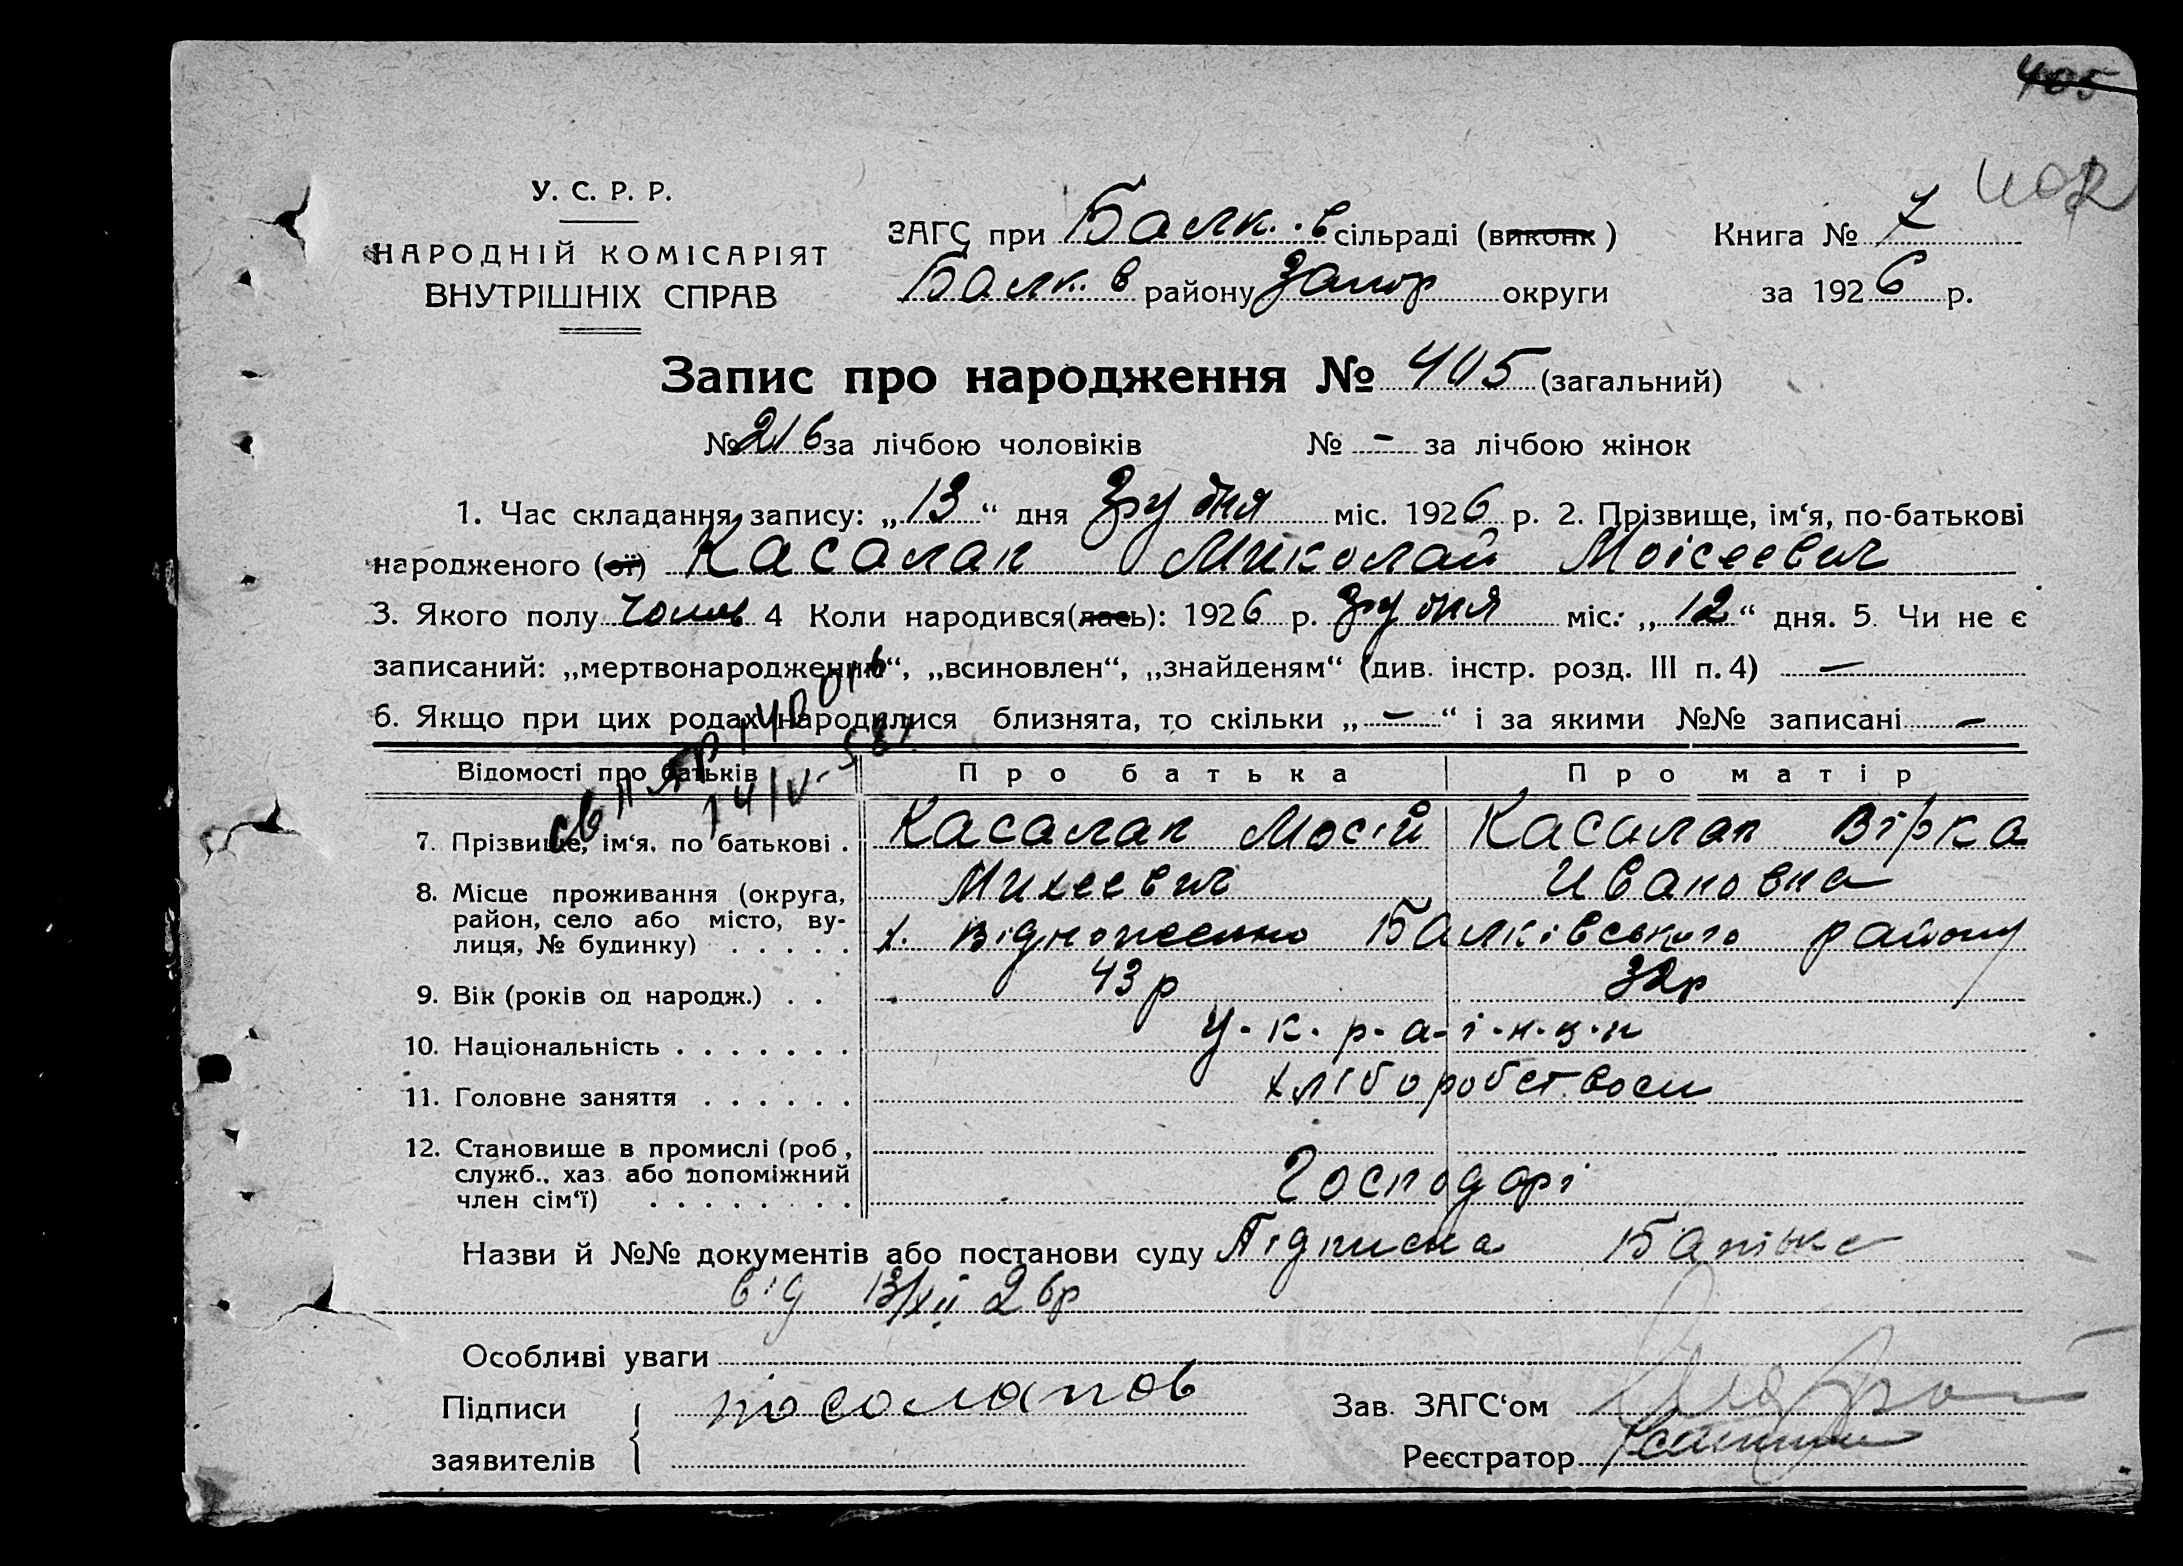 405
У. С. Р. Р.
НАРОДНІЙ КОМІСАРІЯТ
ВНУТРІШНІХ СПРАВ
ЗАГС при Балк..в сільраді (виконк) Книга № 7
Балк. в району Запор округи за 1926 р.
Запис про народження № 405 (загальний)
№ 216 за лічбою чоловіків № – за лічбою жінок
1. Час складання запису: „13“ дня Грудня міс. 1926 р. 2. Прізвище, ім‘я, по-батькові
народженого (ої) Касалап Миколай Моісеевич
3. Якого полу чолов 4 Коли народився(лась): 1926 р. Грудня міс: „12“ дня. 5. Чи не є
записаний: „мертвонароджений“, „всиновлен“, „знайденям“ (див. інстр. розд. III п. 4) —
6. Якщо при цих родах народилися близнята, то скільки „–“ і за якими №№ записані –
Відомості про батьків Про батька Про матір
7. Прізвище, ім‘я, по батькові . Касалап Мосій Касалап Вірка
Михеевич Ивановна
8. Місце проживання (округа,
район, село або місто, ву-
лиця, № будинку) . . . . . х. Балківського району
9. Вік (років од народж.) . . 43 р 32р
10. Національність . . . . . . . У-к-р-а-ї-н-ц-и
11. Головне заняття . . . . . . хліборобством
12. Становище в промислі (роб,
служб., хаз. або допоміжний
член сім‘ї) . . . . . . . . Господарі
Назви й №№ документів або постанови суду Підписка Батька
від 13/XII 26р
Особливі уваги
Підписи косолапов Зав. ЗАГС‘ом
заявителів Реєстратор